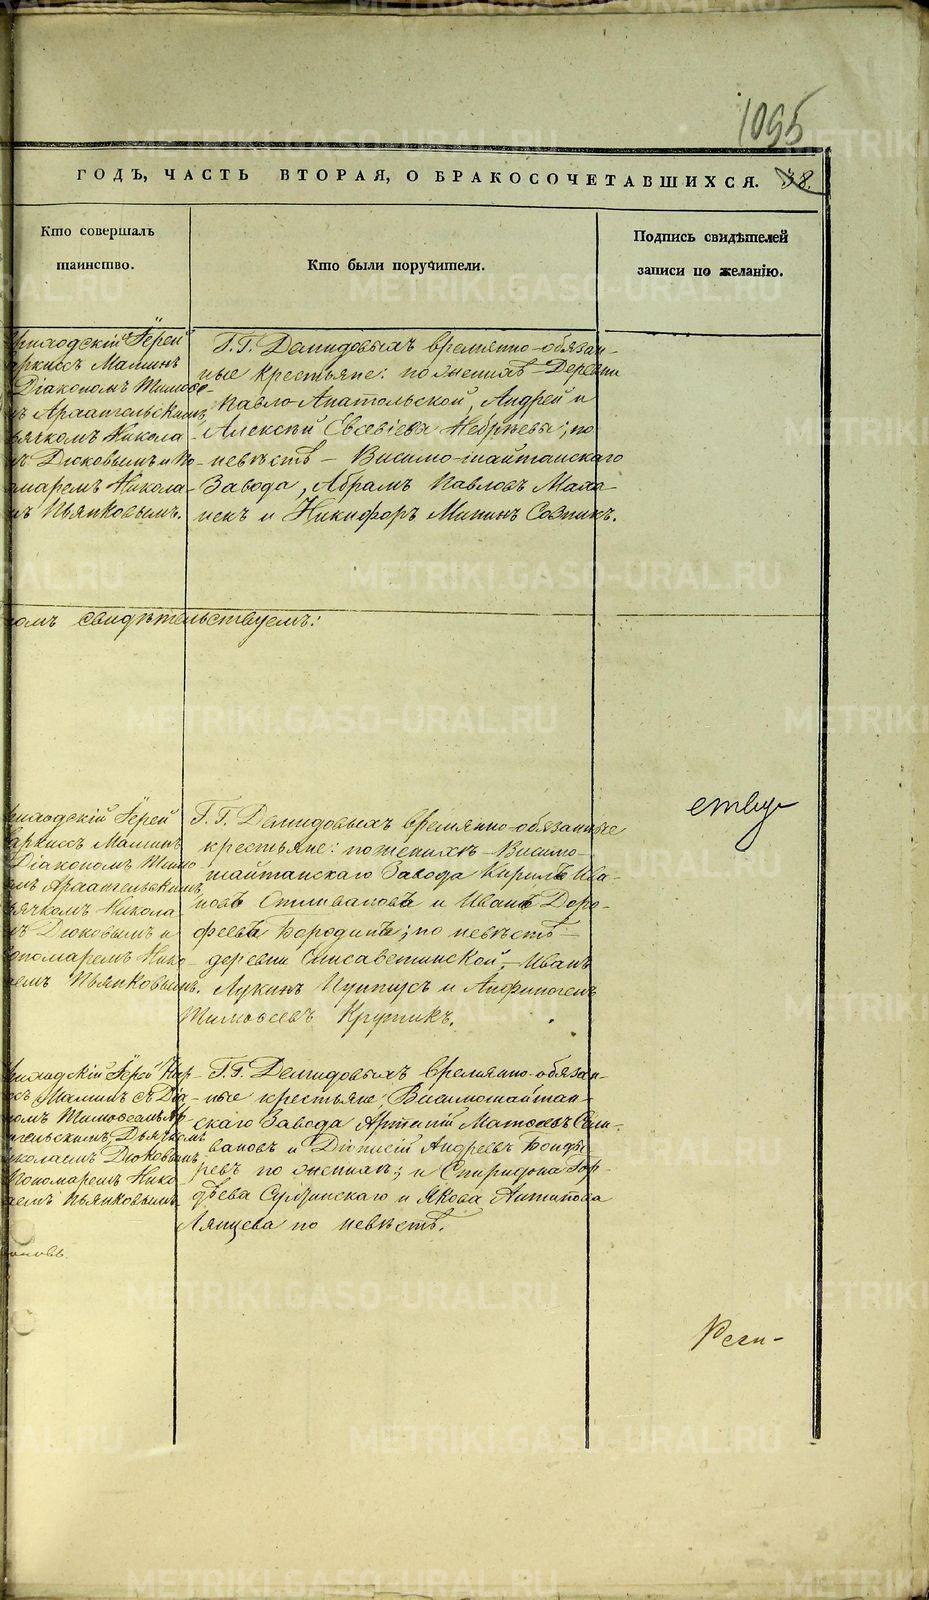 1095
ГОДЪ, ЧАСТЬ ВТОРАЯ, О БРАКОСОЧЕТАВШИХСЯ. 38.
Кто совершалъ
таинство.
Кто были поручители.
Подпись свидѣтелей
записи по желанію.
приходскій Іерей
аркисъ Маминъ
Діакономъ Тимоѳе-
мъ Архангельскимъ,
ячкомъ Никола-
мъ Дюковымъ и По-
омаремъ Никола-
мъ Пьянковымъ.
Г.Г. Демидовыхъ времянно-обязан-
ные крестьяне: по женихѣ Деревни
Павло-Анатольской, Андрей и
Алексѣй Евсевіевы; по
невѣстѣ – Висимо-шайтанскаго
Завода, Абрамъ Павловъ
и Никифоръ
омъ свидѣтельствуемъ:
приходскій Іерей
аркисъ Маминъ
Діакономъ Тимо
мъ Архангельскимъ,
ячкомъ Никола-
мъ Дюковымъ и
ономаремъ Нико-
аемъ Пьянковымъ.
Г.Г. Демидовыхъ времянно-обязанные
крестьяне: по женихѣ – Висимо-
шайтанскаго Завода Кирилъ Ива-
новъ и Иванъ Доро-
феевъ Бородинъ; по невѣстѣ –
деревни Елисаветинской, – Иванъ
Лукинъ и Анфиногенъ
Тимоѳеевъ Крутикъ.
ству
приходскій Іерей Нар-
съ Маминъ съ Діа-
номъ Тимоѳеемъ Ар-
нгельскимъ, Дьячкомъ
иколаемъ Дюковымъ
Пономаремъ Нико-
аемъ Пьянковымъ
Г.Г. Демидовыхъ времянно-обязан-
ные крестьяне: Висимошайтан-
скаго Завода Артемій Матвѣевъ Сели-
вановъ и Діонисій Андреевъ Бонда-
ревъ по женихѣ; и Спиридона Гор-
дѣева и Якова Антипова
по невѣстѣ.